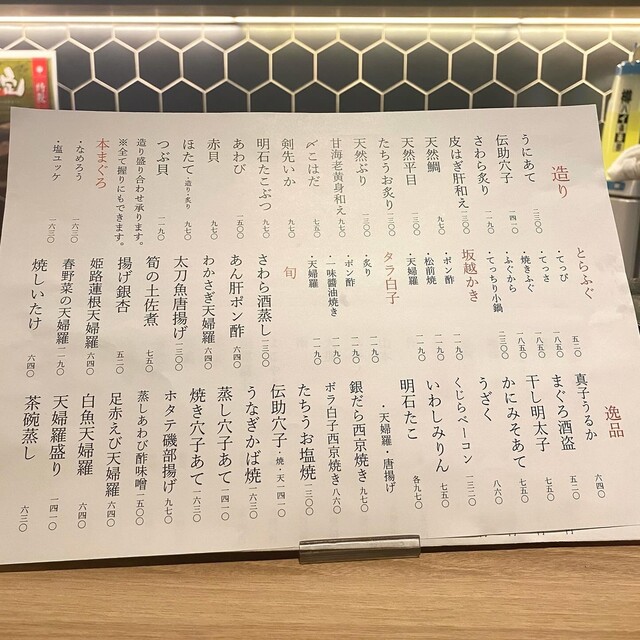 造り
うにあて 二三〇〇
伝助穴子 一四一〇
さわら炙り 一一九〇
皮はぎ肝和え 一三〇〇
天然鯛 一一九〇
天然平目 一三〇〇
たちうお炙り 一三〇〇
天然ぶり 一三〇〇
甘海老黄身和え 九七〇
〆こはだ 七五〇
剣先いか 九七〇
明石たこぶつ 九七〇
あわび 一五〇〇
赤貝 一一九〇
ほたて・造り・炙り 九七〇
つぶ貝 九七〇
造り盛り合わせ承ります。
※全て握りにもできます。
本まぐろ
・なめろう 一六三〇
・塩ユッケ 一六三〇
とらふぐ
・てっぴ 五二〇
・てっさ 一八五〇
・焼きふぐ 一八五〇
・ふぐから 一八五〇
・てっちり小鍋 二三〇〇
坂越かき
・ポン酢 一一九〇
・松前焼 一一九〇
・天婦羅 一一九〇
タラ白子
・炙り 一一九〇
・ポン酢 一一九〇
・一味醤油焼き 一一九〇
・天婦羅 一一九〇
旬
さわら酒蒸し 一三〇〇
あん肝ポン酢 八六〇
わかさぎ天婦羅 六四〇
太刀魚唐揚げ 一三〇〇
筍の土佐煮 七五〇
揚げ銀杏 五二〇
姫路蓮根天婦羅 六四〇
春野菜の天婦羅 一一九〇
焼しいたけ 六四〇
逸品
真子うるか 六四〇
まぐろ酒盗 五二〇
干し明太子 七五〇
かにみそあて 七五〇
うざく 八六〇
くじらベーコン 一三二〇
いわしみりん 七五〇
明石たこ
・天婦羅・唐揚げ 各九七〇
銀だら西京焼き 九七〇
ボラ白子西京焼き 八六〇
たちうお塩焼 一三〇〇
伝助穴子・焼・天 一四一〇
うなぎかば焼 一六三〇
蒸し穴子あて 一四一〇
焼き穴子あて 一六三〇
ホタテ磯部揚げ 九七〇
蒸しあわび酢味噌 一五〇〇
足赤えび天婦羅 六四〇
白魚天婦羅 六四〇
天婦羅盛り 一四一〇
茶碗蒸し 六三〇